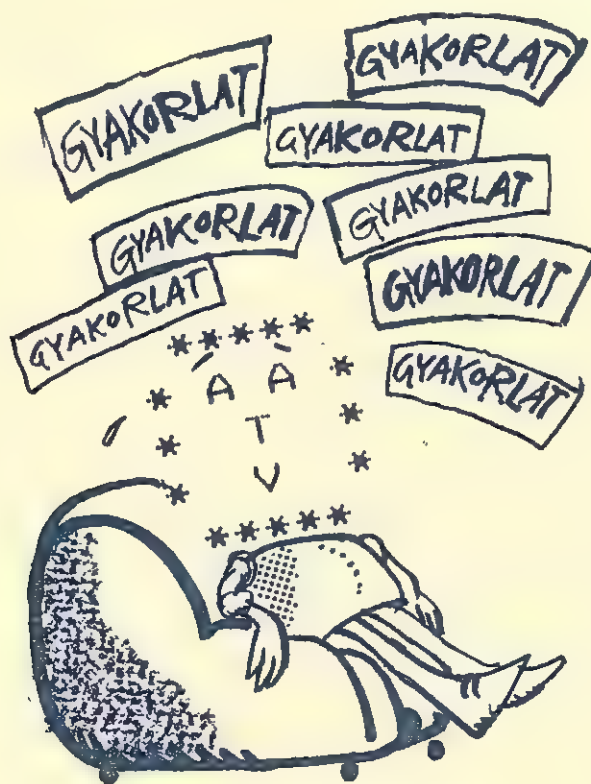 GYAKORLAT
GYAKORLAT
GYAKORLAT
GYAKORLAT
GYAKORLAT
GYAKORLAT
GYAKORLAT
GYAKORLAT
Á À
T
V